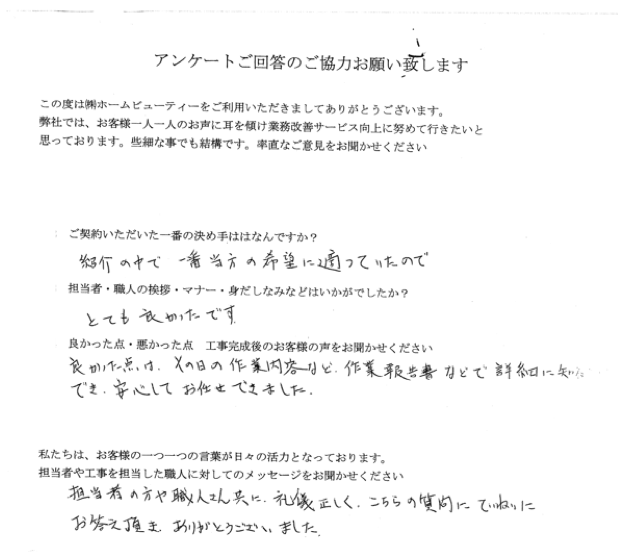 アンケートご回答のご協力お願い致します
この度は㈱ホームビューティーをご利用いただきましてありがとうございます。
弊社では、お客様一人一人のお声に耳を傾け業務改善サービス向上に努めて行きたいと
思っております。些細な事でも結構です。率直なご意見をお聞かせください
ご契約いただいた一番の決め手ははなんですか？
紹介の中で 一番当方の希望に適っていたので
担当者・職人の挨拶・マナー・身だしなみなどはいかがでしたか？
とても良かったです
良かった点・悪かった点 工事完成後のお客様の声をお聞かせください
良かった点は、その日の作業内容など、作業報告書などで詳細に知
でき、安心してお任せできました。
私たちは、お客様の一つ一つの言葉が日々の活力となっております。
担当者や工事を担当した職人に対してのメッセージをお聞かせください
担当者の方や職人さん共に、礼儀正しく、こちらの質問にていねいに
お答え頂き、ありがとうございました。